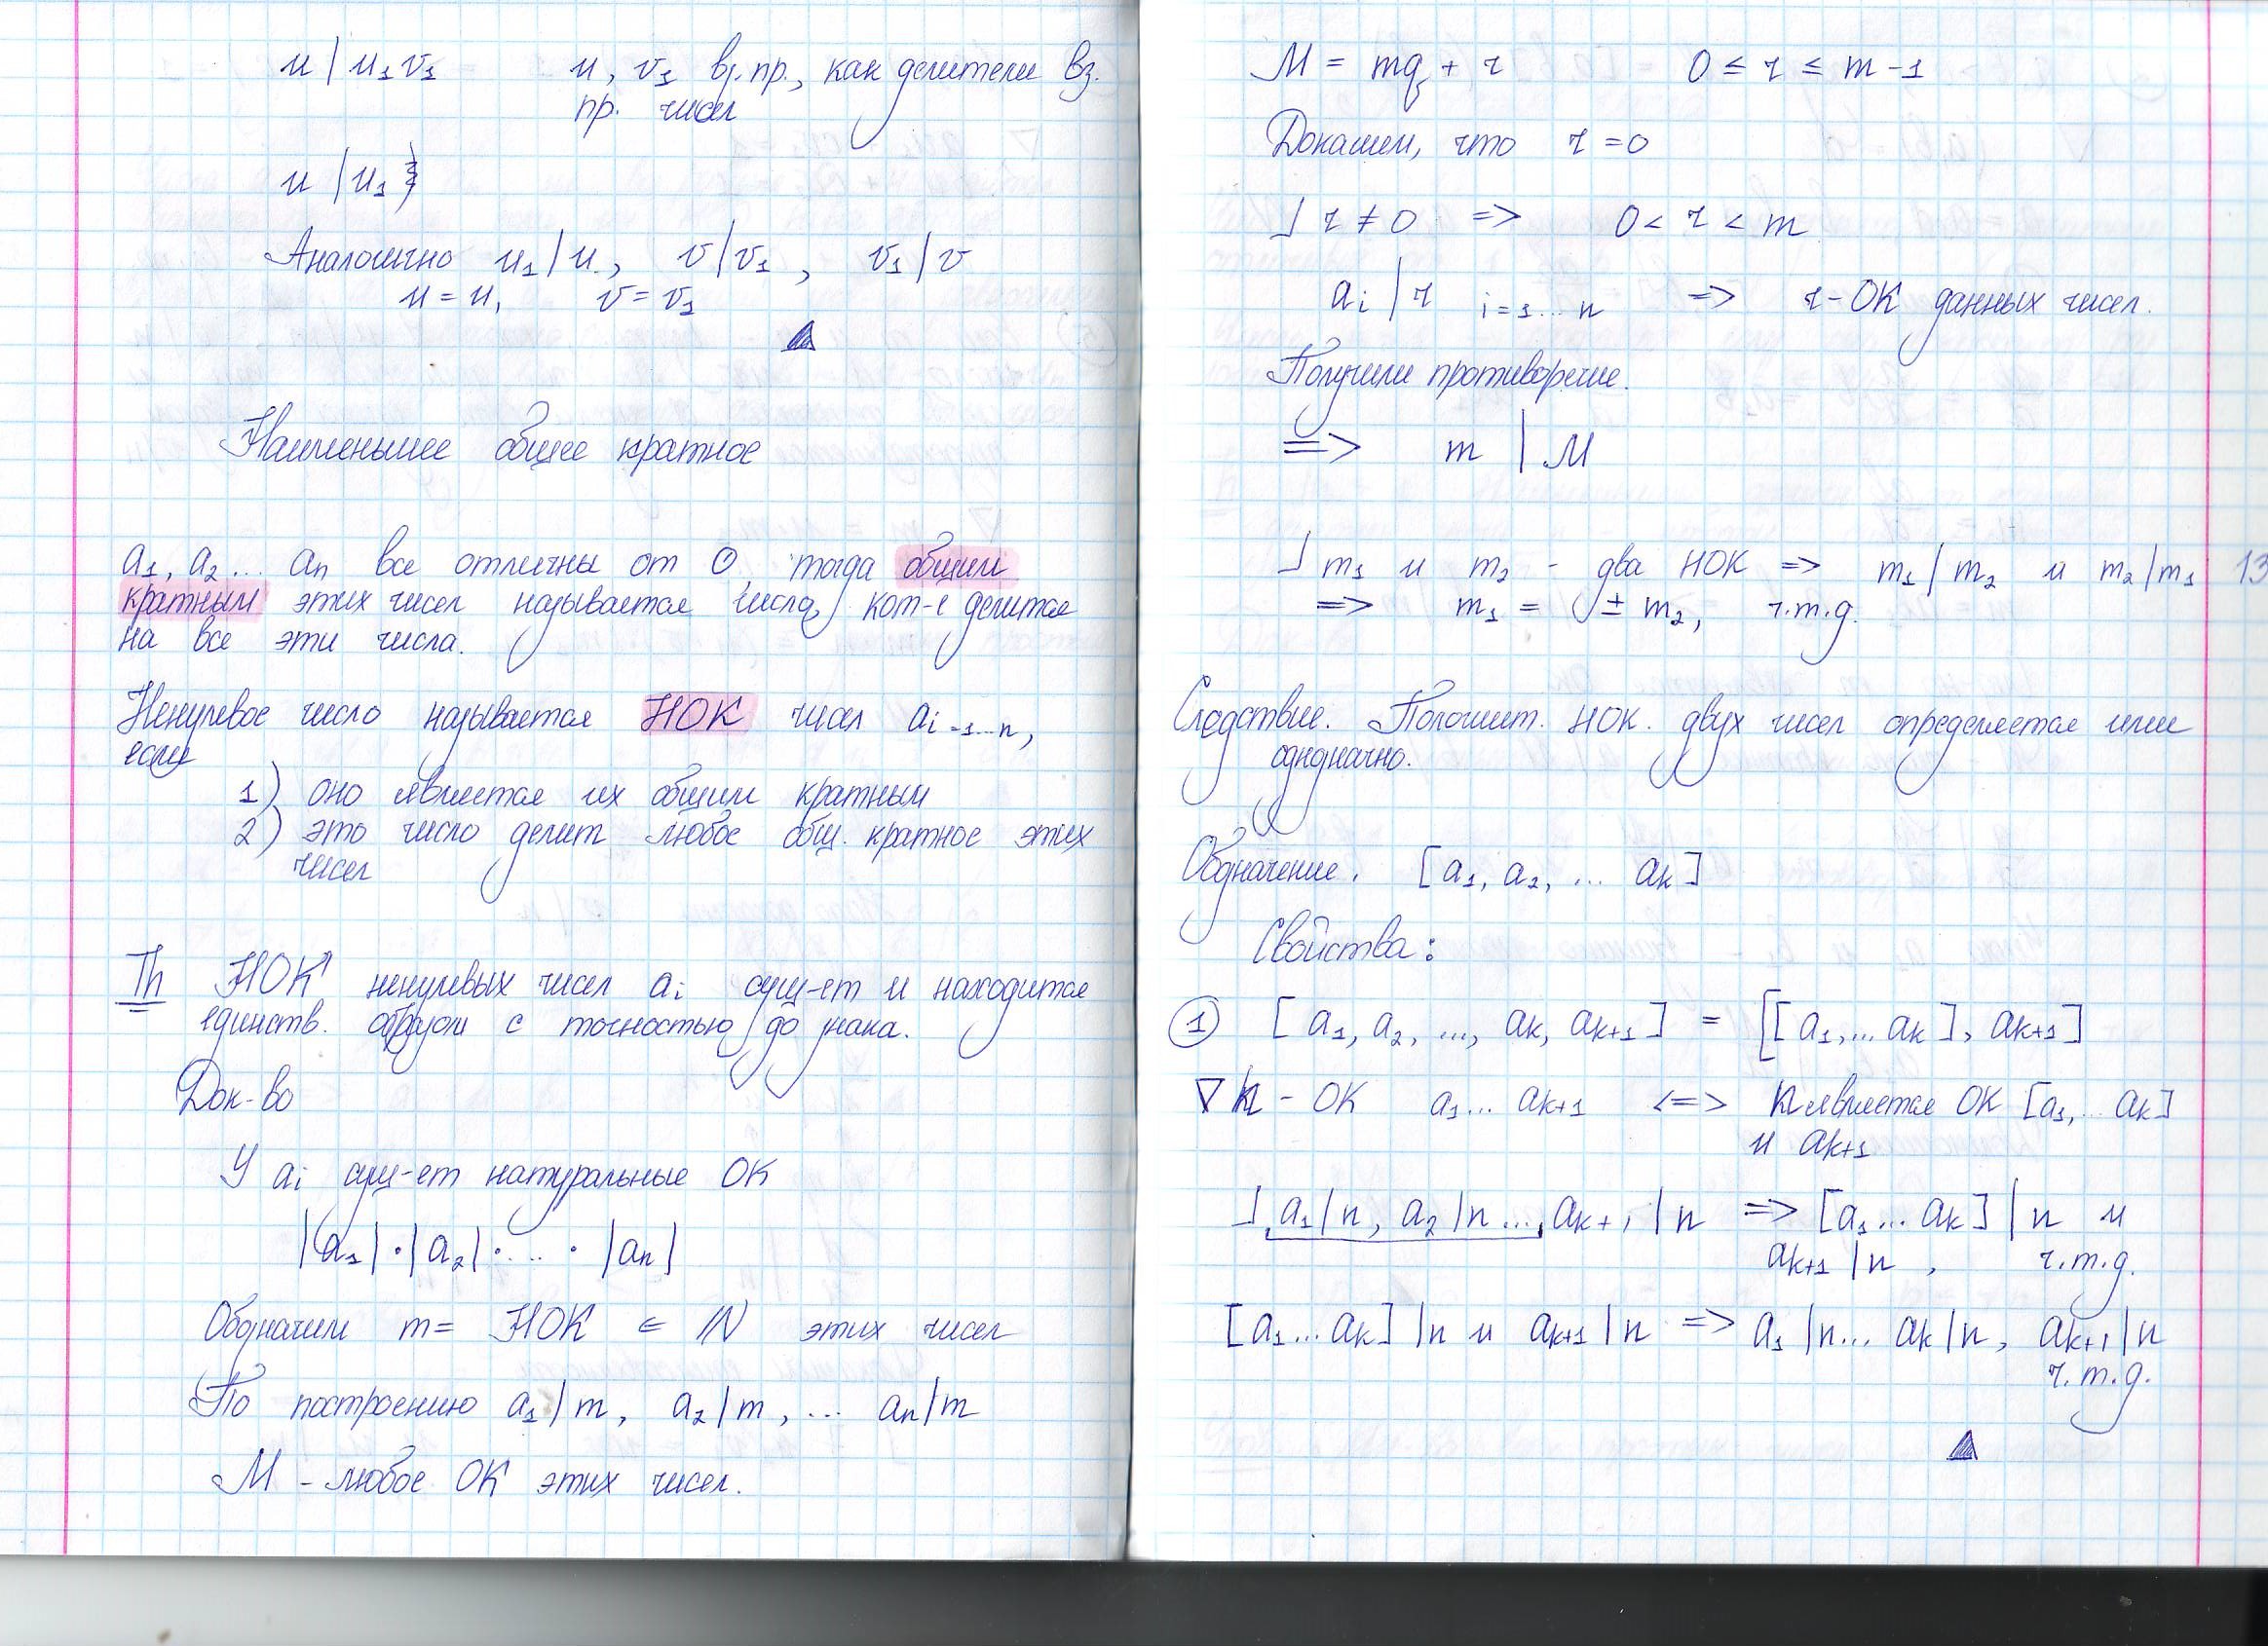 u | u₁v₁ u, v₁ вз. пр., как делители вз.
пр. чисел
u | u₁
Аналогично u₁ | u, v | v₁, v₁ | v
u = u₁ v = v₁
Наименьшее общее кратное
a₁, a₂... aₙ все отличны от 0, тогда общим
кратным этих чисел называется число, кот-е делится
на все эти числа.
Ненулевое число называется НОК чисел aᵢ ₌₁...ₙ,
если
1) оно является их общим кратным
2) это число делит любое общ. кратное этих
чисел
Th НОК ненулевых чисел aᵢ сущ-ет и находится
единств. образом с точностью до знака.
Док-во
У aᵢ сущ-ет натуральные ОК
|a₁|·|a₂|·...·|aₙ|
Обозначим m = НОК ∈ ℕ этих чисел
По построению a₁ | m, a₂ | m, ... aₙ | m
M - любое ОК этих чисел.
M = mq + r 0 ≤ r ≤ m-1
Докажем, что r = 0
⅃ r ≠ 0 => 0 < r < m
aᵢ | r i=1...n => r - ОК данных чисел.
Получили противоречие.
=> m | M
⅃ m₁ и m₂ - два НОК => m₁ | m₂ и m₂ | m₁ 13
=> m₁ = ± m₂, ч.т.д.
Следствие. Положит. НОК. двух чисел определяется ими
однозначно.
Обозначение. [a₁, a₂, ... aₖ]
Свойства:
① [a₁, a₂, ..., aₖ, aₖ₊₁] = [[a₁,... aₖ], aₖ₊₁]
∇ n - ОК a₁... aₖ₊₁ <=> n является ОК [a₁,... aₖ]
и aₖ₊₁
⅃ a₁ | n, a₂ | n..., aₖ₊₁ | n => [a₁... aₖ] | n и
aₖ₊₁ | n, ч.т.д.
[a₁... aₖ] | n и aₖ₊₁ | n => a₁ | n... aₖ | n, aₖ₊₁ | n
ч.т.д.